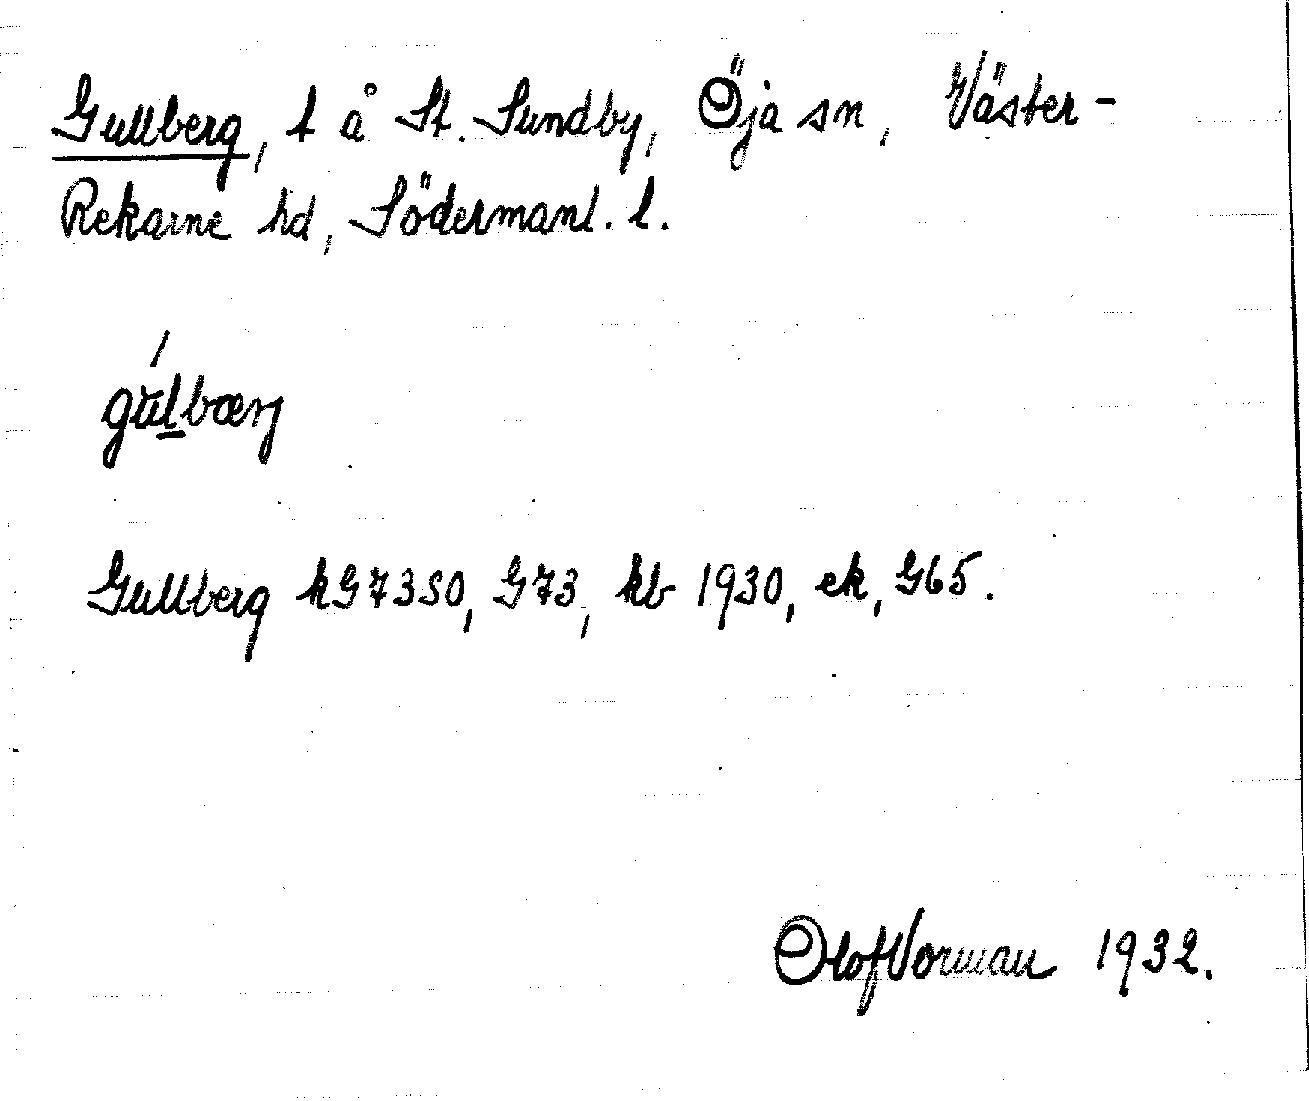 Gullberg, t å St. Sundby, Öja sn, Väster-
Rekarne hd, Södermanl. l.
gúl̲bærj
Gullberg hG7350, G73, kb 1930, ek, G65.
Olof Vorman 1932.